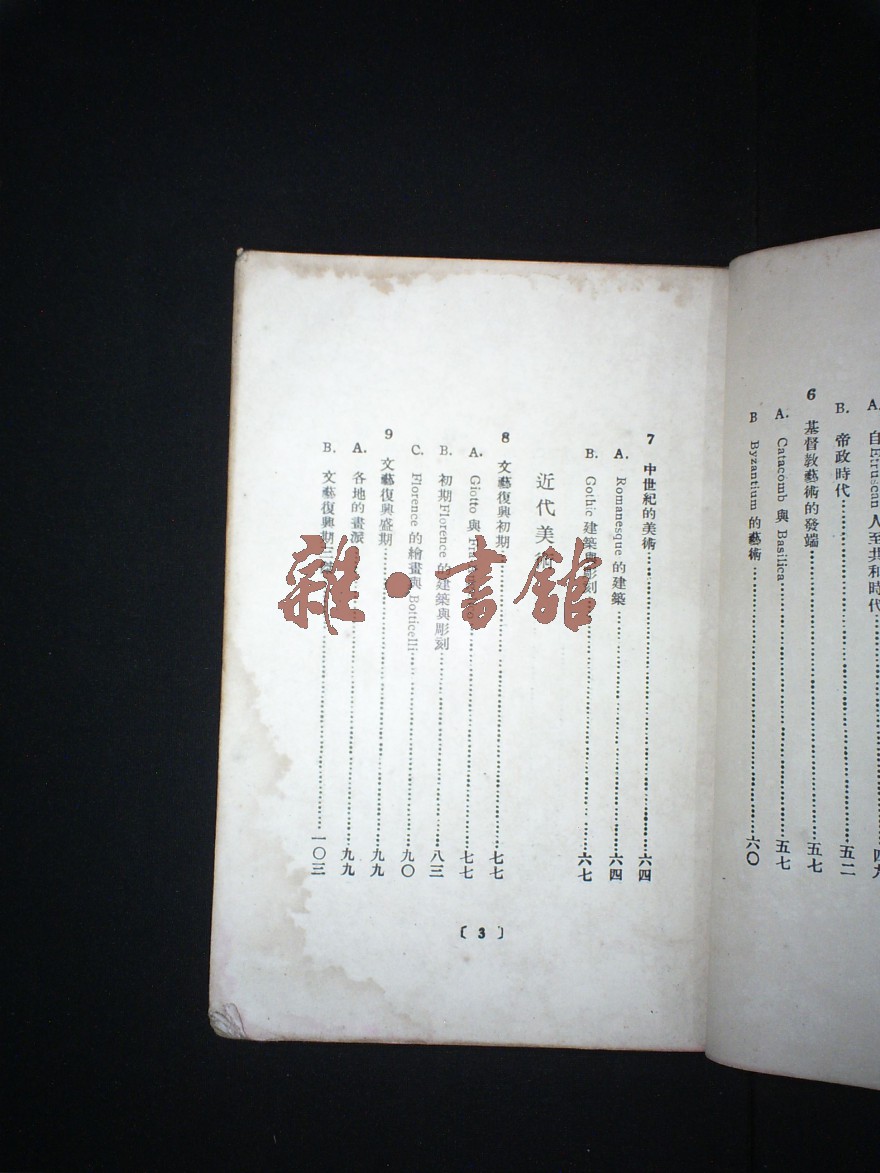 A. 自Etruscan人至共和時代……四九
B. 帝政時代……五二
6 基督教藝術的發端……五七
A. Catacomb 與 Basilica……五七
B Byzantium 的藝術……六〇
7 中世紀的美術……六四
A. Romanesque 的建築……六四
B. Gothic 建築與彫刻……六七
近代美術
8 文藝復興初期……七七
A. Giotto 與……七七
B. 初期Florence 的建築與彫刻……八三
C. Florence 的繪畫與 Botticelli……九〇
9 文藝復興盛期……九九
A. 各地的畫派……九九
B. 文藝復興期三……一〇三
〔3〕
雜·書館